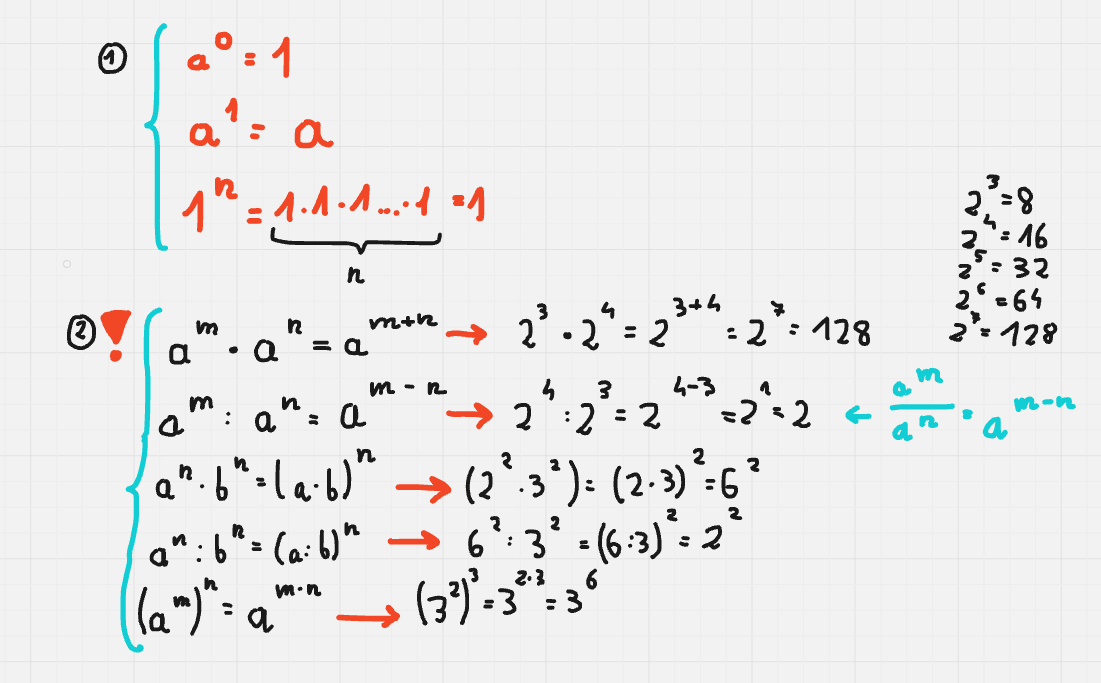 ① a⁰ = 1
a¹ = a
1ⁿ = 1·1·1...·1 = 1
n
2³ = 8
2⁴ = 16
2⁵ = 32
2⁶ = 64
2⁷ = 128
② ! aᵐ · aⁿ = aᵐ⁺ⁿ → 2³ · 2⁴ = 2³⁺⁴ = 2⁷ = 128
aᵐ : aⁿ = aᵐ⁻ⁿ → 2⁴ : 2³ = 2⁴⁻³ = 2¹ = 2 ← aᵐ/aⁿ = aᵐ⁻ⁿ
aⁿ · bⁿ = (a·b)ⁿ → (2² · 3²) = (2·3)² = 6²
aⁿ : bⁿ = (a:b)ⁿ → 6² : 3² = (6:3)² = 2²
(aᵐ)ⁿ = aᵐ˙ⁿ → (3²)³ = 3²˙³ = 3⁶